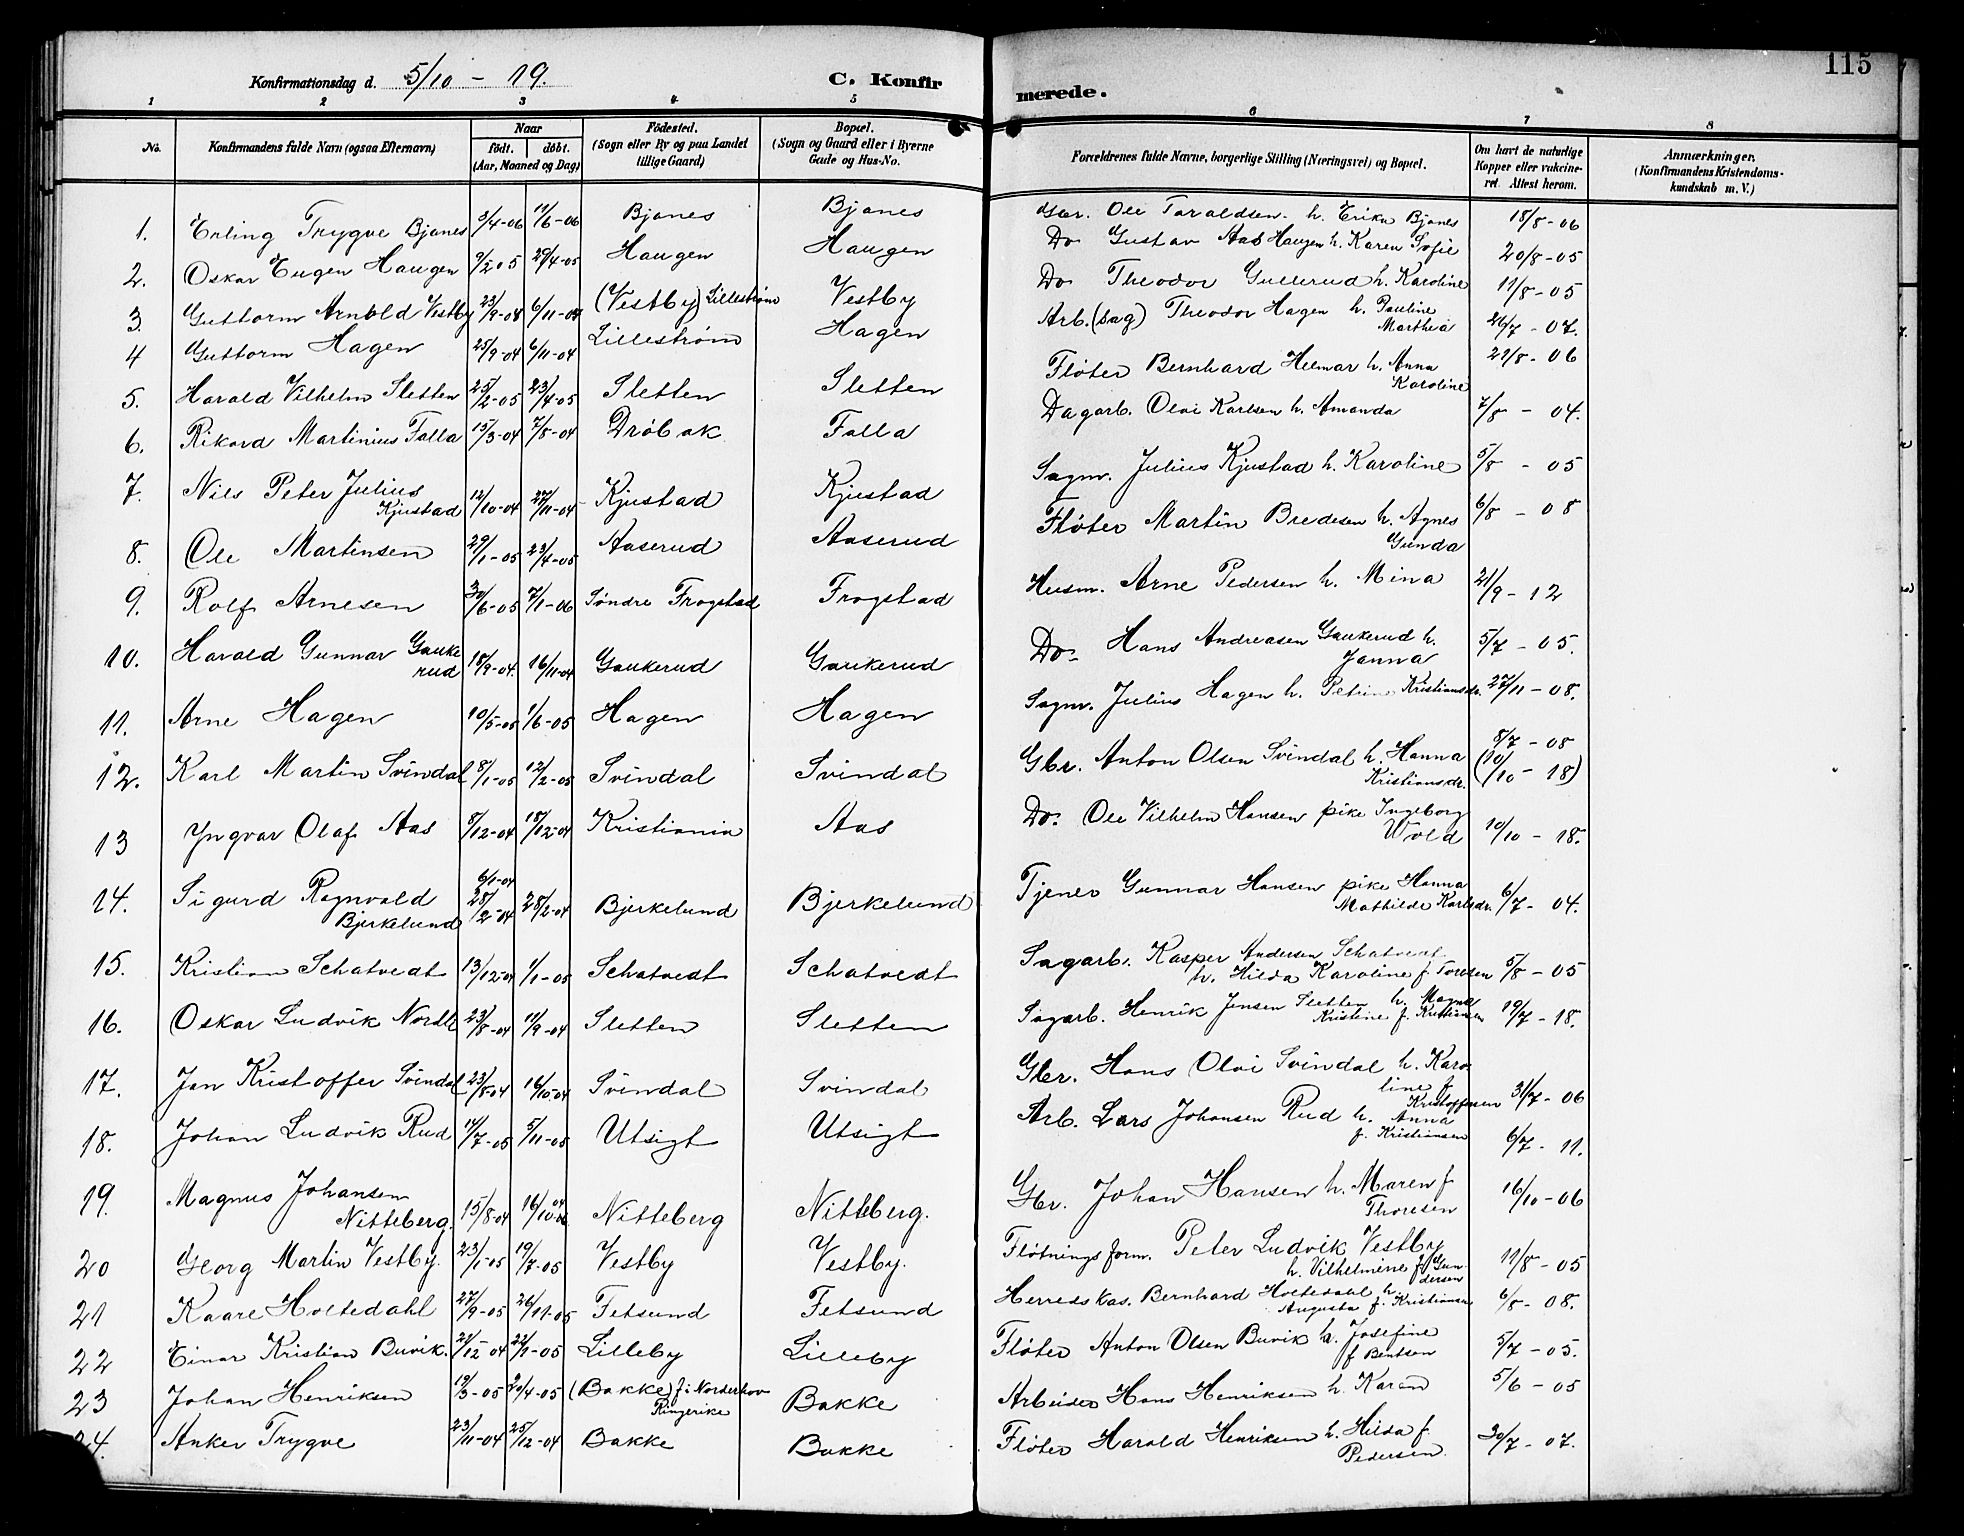 115
Konfirmationsdag d. 5/10 - 19. C. Konfir merede.
1 2 3 4 5 6 7 8
No. Konfirmandens fulde Navn (ogsaa Efternavn) Naar født. døbt. (Aar, Maaned og Dag) Fødested. (Sogn eller By og paa Landet tillige Gaard) Bopæl. (Sogn og Gaard eller i Byerne Gade og Hus-No. Forældrenes fulde Navne, borgerlige Stilling (Næringsvei) og Bopæl. Om havt de naturlige Kopper eller vakcineret. Attest herom. Anmærkninger. (Konfirmandens Kristendomskundskab m. V.)
1. Erling Trygve Bjanes 3/4-06 11/6-06 Bjanes Bjanes Gbr. Ole Taraldsen h. Erika Bjanes 18/8-06
2. Oskar Eugen Haugen 9/2 05 29/4-05 Haugen Haugen Do Gustav Aas Haugen h. Karen Sofie 20/8-05
3. Guttorm Arnold Vestby 23/9-04 6/11-04 (Vestby) Lillestrøm Vestby Do Theodor Gullerud h. Karoline 11/8-05
4 Guttorm Hagen 25/9-04 6/11-04 Lillestrøm Hagen Arb. (sag) Theodor Hagen h. Pauline Marthea 26/7-07.
5. Harald Vilhelm Sletten 25/2-05 23/4-05 Sletten Sletten Fløter Bernhard Helmar h. Anna Karoline 21/8-06
6. Rikard Martinius Falla 15/3-04 7/8-04 Drøbak Falla Dagarb. Olai Karlsen h. Amanda 7/8 - 04.
7. Nils Peter Julius Kjustad 12/10-04 27/11-04 Kjustad Kjustad Sagm. Julius Kjustad h. Karoline 5/8 - 05
8. Ole Martinsen 29/1-05 23/4-05 Aaserud Aaserud Fløter Martin Bredesen h. Agnes Gunda 6/8 - 08
9. Rolf Arnesen 30/6-05 7/1-06 Søndre Frogstad Frogstad Husm. Arne Pedersen h. Mina 21/9-12
10. Harald Gunnar Gaukerud 18/9-04. 16/11-04 Gaukerud Gaukerud Do- Hans Andreasen Gaukerud h. Janna 5/7-05.
11. Arne Hagen 10/5-05 1/6-05 Hagen Hagen Sagm. Julius Hagen h. Petrine Kristiansdr. 27/11-08.
12. Karl Martin Svindal 8/1-05 12/2-05 Svindal Svindal Gbr. Anton Olsen Svindal h. Hanna Kristiansdr. 8/7-08 (10/10-18)
13 Yngvar Olaf Aas 8/12-04 18/12-04 Kristiania Aas Do. Ole Vilhelm Hansen pike Ingeborg Wold 10/10-18.
14. Sigurd Ragnvald Bjerkelund 6/1-04 28/2-04 28/2-04 Bjerkelund Bjerkelund Tjener Gunnar Hansen pike Hanna Mathilde Karlsdr. 6/7-04.
15. Kristian Schatvedt 13/12-04 1/1-05 Schatvedt Schatvedt Sagarb. Kasper Andersen Schatvedt h. Hilda Karoline f. Toresen 5/8-05
16. Oskar Ludvik Nordli 23/8-04 11/9-04 Sletten Sletten Sagarb. Henrik Jensen Sletten h. Magna Kristine f. Kristiansen 19/7-18.
17. Jan Kristoffer Svindal 23/8-04 16/10-04 Svindal Svindal Gbr. Hans Olai Svindal h. Karoline f. Kristoffersen 31/7-06
18. Johan Ludvik Rud 14/7-05 5/11-05 Utsigt Utsigt Arb. Lars Johansen Rud h. Anna f. Kristiansen 6/7-11.
19. Magnus Johansen Nitteberg. 15/8-04 16/10-04 Nitteberg Nitteberg. Gbr. Johan Hansen h. Maren f Thoresen 16/10-06
20 Georg Martin Vestby. 23/1-05 19/7-05 Vestby Vestby. Fløtningsform. Peter Ludvik Vestby h. Vilhelmine f Gundersen 11/8-05
21 Kaare Holtedahl 27/9-05 26/11-05 Fetsund Fetsund Herredskas. Bernhard Holtedahl h. Augusta f. Kristiansen 6/8-08.
22 Einar Kristian Buvik. 21/12 04 22/1-05 Lilleby Lilleby Fløter Anton Olsen Buvik h. Josefine f Bentsen 5/7-05.
23 Johan Henriksen 19/3-05 20/4-05 (Bakke) f. i Norderhov Ringerike Bakke Arbeider Hans Henriksen h. Karen 5/6-05
24. Anker Trygve 23/11-04 25/12-04 Bakke Bakke Fløter Harald Henriksen h. Hilda f. Pedersen 30/7-07.